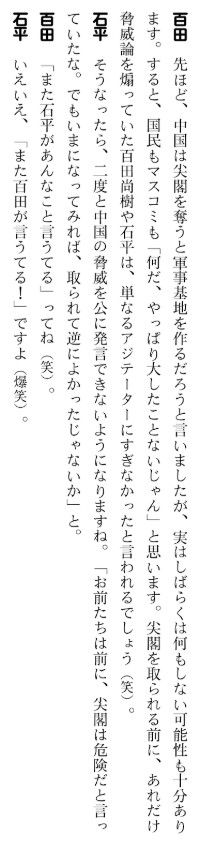 百田　先ほど、中国は尖閣を奪うと軍事基地を作るだろうと言いましたが、実はしばらくは何もしない可能性も十分あり
ます。すると、国民もマスコミも「何だ、やっぱり大したことないじゃん」と思います。尖閣を取られる前に、あれだけ
脅威論を煽っていた百田尚樹や石平は、単なるアジテーターにすぎなかったと言われるでしょう（笑）。
石平　そうなったら、二度と中国の脅威を公に発言できないようになりますね。「お前たちは前に、尖閣は危険だと言っ
ていたな。でもいまになってみれば、取られて逆によかったじゃないか」と。
百田　「また石平があんなこと言うてる」ってね（笑）。
石平　いえいえ、「また百田が言うてる！」ですよ（爆笑）。